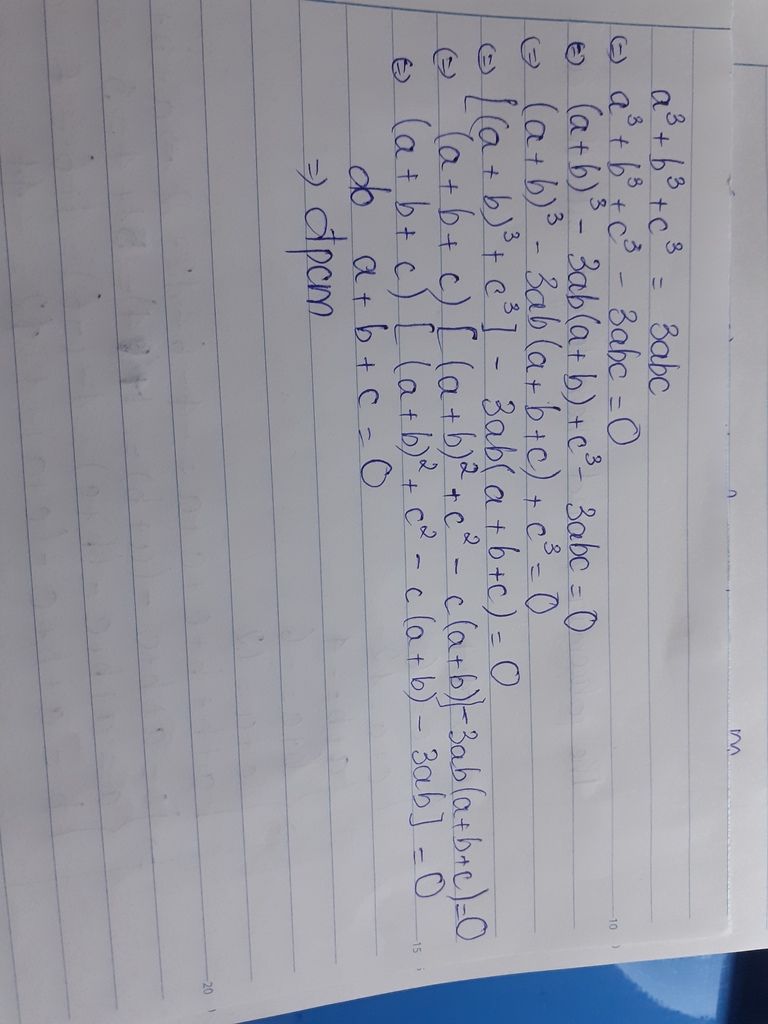 a³ + b³ + c³ = 3abc
(=) a³ + b³ + c³ - 3abc = 0
(=) (a + b)³ - 3ab(a + b) + c³ - 3abc = 0
(=) (a + b)³ - 3ab(a + b + c) + c³ = 0
(=) [(a + b)³ + c³] - 3ab(a + b + c) = 0
(=) (a + b + c) [(a + b)² + c² - c(a + b)] - 3ab(a + b + c) = 0
(=) (a + b + c) [(a + b)² + c² - c(a + b) - 3ab] = 0
do a + b + c = 0
=) đpcm
10
15
20